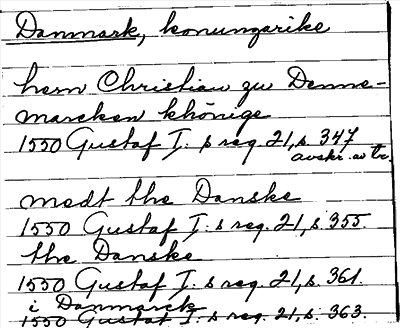 Danmark, konungarike
hern Christian zu Denne-
marcken khönige
1550 Gustaf I. s reg. 21, s. 347
avskr. av tr.
medt the Danske
1550 Gustaf I. s reg. 21, s. 355.
the Danske
1550 Gustaf I. s reg. 21, s. 361.
i Danmarck
1550 Gustaf I. s reg. 21, s. 363.